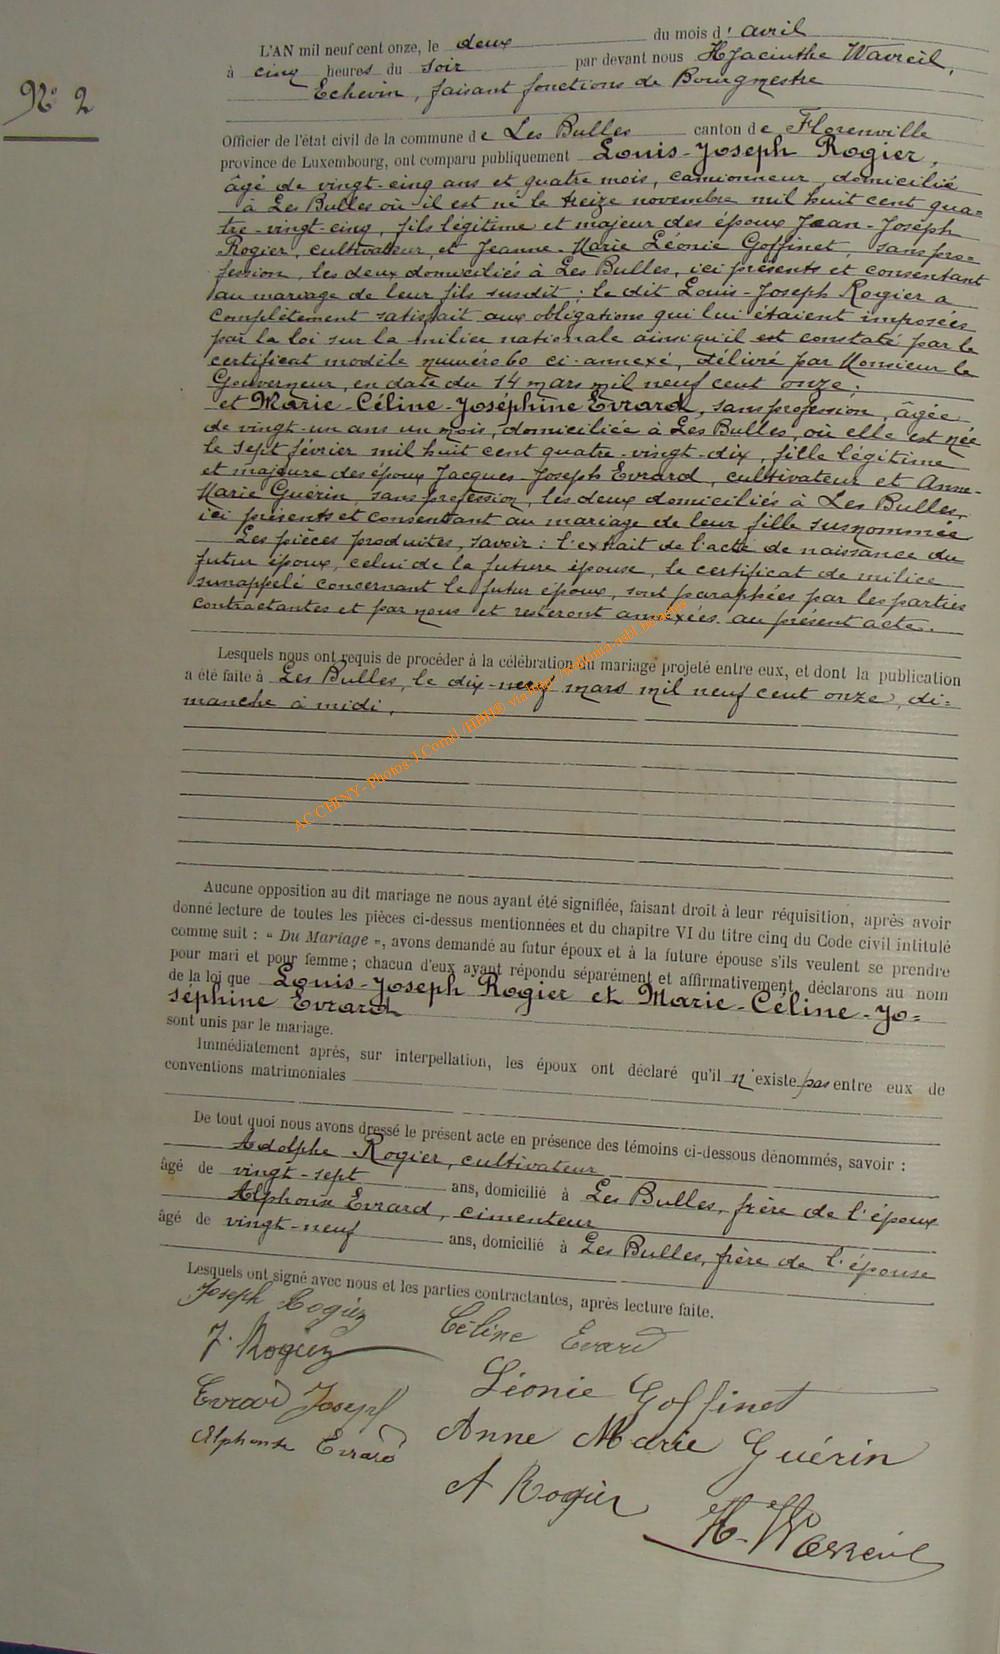 Nº 2
L'AN mil neuf cent onze, le deux du mois d' avril
à cinq heures du soir par devant nous Hyacinthe Wavreil,
Echevin, faisant fonctions de Bourgmestre
Officier de l'état civil de la commune de Les Bulles canton de Florenville
province de Luxembourg, ont comparu publiquement Louis-Joseph Rogier,
âgé de vingt-cinq ans et quatre mois, camionneur, domicilié
à Les Bulles où il est né le treize novembre mil huit cent qua-
tre-vingt-cinq, fils légitime et majeur des époux Jean-Joseph
Rogier, cultivateur, et Jeanne-Marie Léonie Goffinet, sans pro-
fession, les deux domiciliés à Les Bulles, ici présents et consentant
au mariage de leur fils susdit ; le dit Louis-Joseph Rogier a
complètement satisfait aux obligations qui lui étaient imposées
par la loi sur la milice nationale ainsi qu'il est constaté par le
certificat modèle numéro 60 ci-annexé, délivré par Monsieur le
Gouverneur, en date du 14 mars mil neuf cent onze ;
et Marie-Céline-Joséphine Evrard, sans profession, âgée
de vingt-un ans un mois, domiciliée à Les Bulles, où elle est née
le sept février mil huit cent quatre-vingt-dix, fille légitime
et majeure des époux Jacques-Joseph Evrard, cultivateur et Anne-
Marie Guérin, sans profession, les deux domiciliés à Les Bulles,
ici présents et consentant au mariage de leur fille susnommée
Les pièces produites, savoir : l'extrait de l'acte de naissance du
futur époux, celui de la future épouse, le certificat de milice
susrappelé concernant le futur époux, sont paraphées par les parties
contractantes et par nous et resteront annexées au présent acte.
Lesquels nous ont requis de procéder à la célébration du mariage projeté entre eux, et dont la publication
a été faite à Les Bulles, le dix-neuf mars mil neuf cent onze, di=
manche à midi,
AC CHINY - Photos J.Cornil /HBH®
Aucune opposition au dit mariage ne nous ayant été signifiée, faisant droit à leur réquisition, après avoir
donné lecture de toutes les pièces ci-dessus mentionnées et du chapitre VI du titre cinq du Code civil intitulé
comme suit : « Du Mariage », avons demandé au futur époux et à la future épouse s'ils veulent se prendre
pour mari et pour femme ; chacun d'eux ayant répondu séparément et affirmativement, déclarons au nom
de la loi que Louis-Joseph Rogier et Marie-Céline-Jo=
séphine Evrard
sont unis par le mariage.
Immédiatement après, sur interpellation, les époux ont déclaré qu'il n'existe pas entre eux de
conventions matrimoniales
De tout quoi nous avons dressé le présent acte en présence des témoins ci-dessous dénommés, savoir :
Adolphe Rogier, cultivateur
âgé de vingt-sept ans, domicilié à Les Bulles, frère de l'époux
Alphonse Evrard, cimenteur
âgé de vingt-neuf ans, domicilié à Les Bulles, frère de l'épouse
Lesquels ont signé avec nous et les parties contractantes, après lecture faite.
Joseph Rogier
Céline Evrard
J. Rogier
Léonie Goffinet
Evrard Joseph
Anne Marie Guérin
Alphonse Evrard
A Rogier
H. Wavreil